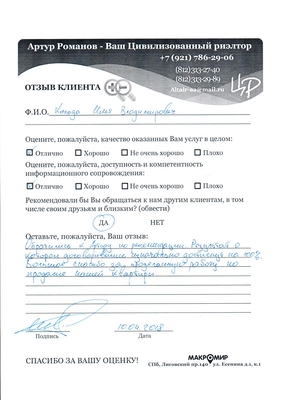 Артур Романов - Ваш Цивилизованный риэлтор
+7 (921) 786-29-06
(812)313-27-40
(812)313-29-89
ОТЗЫВ КЛИЕНТА
Ф.И.О. Илья Владимирович
Оцените, пожалуйста, качество оказанных Вам услуг в целом:
Отлично Хорошо Не очень хорошо Плохо
Оцените, пожалуйста, доступность и компетентность
информационного сопровождения:
Отлично Хорошо Не очень хорошо Плохо
Рекомендовали бы Вы обращаться к нам другим клиентам, в том
числе своим друзьям и близким? (обвести)
ДА НЕТ
Оставьте, пожалуйста, Ваш отзыв:
Обратились к Артуру по рекомендации. Результат о
котором договаривались изначально достигнут на 100%.
Большое спасибо за проделанную работу по
продаже нашей квартиры
10.04.2018
Подпись Дата
СПАСИБО ЗА ВАШУ ОЦЕНКУ!
МАКРОМИР
СПб, Лиговский пр.140 ул. Есенина д.1, к.1